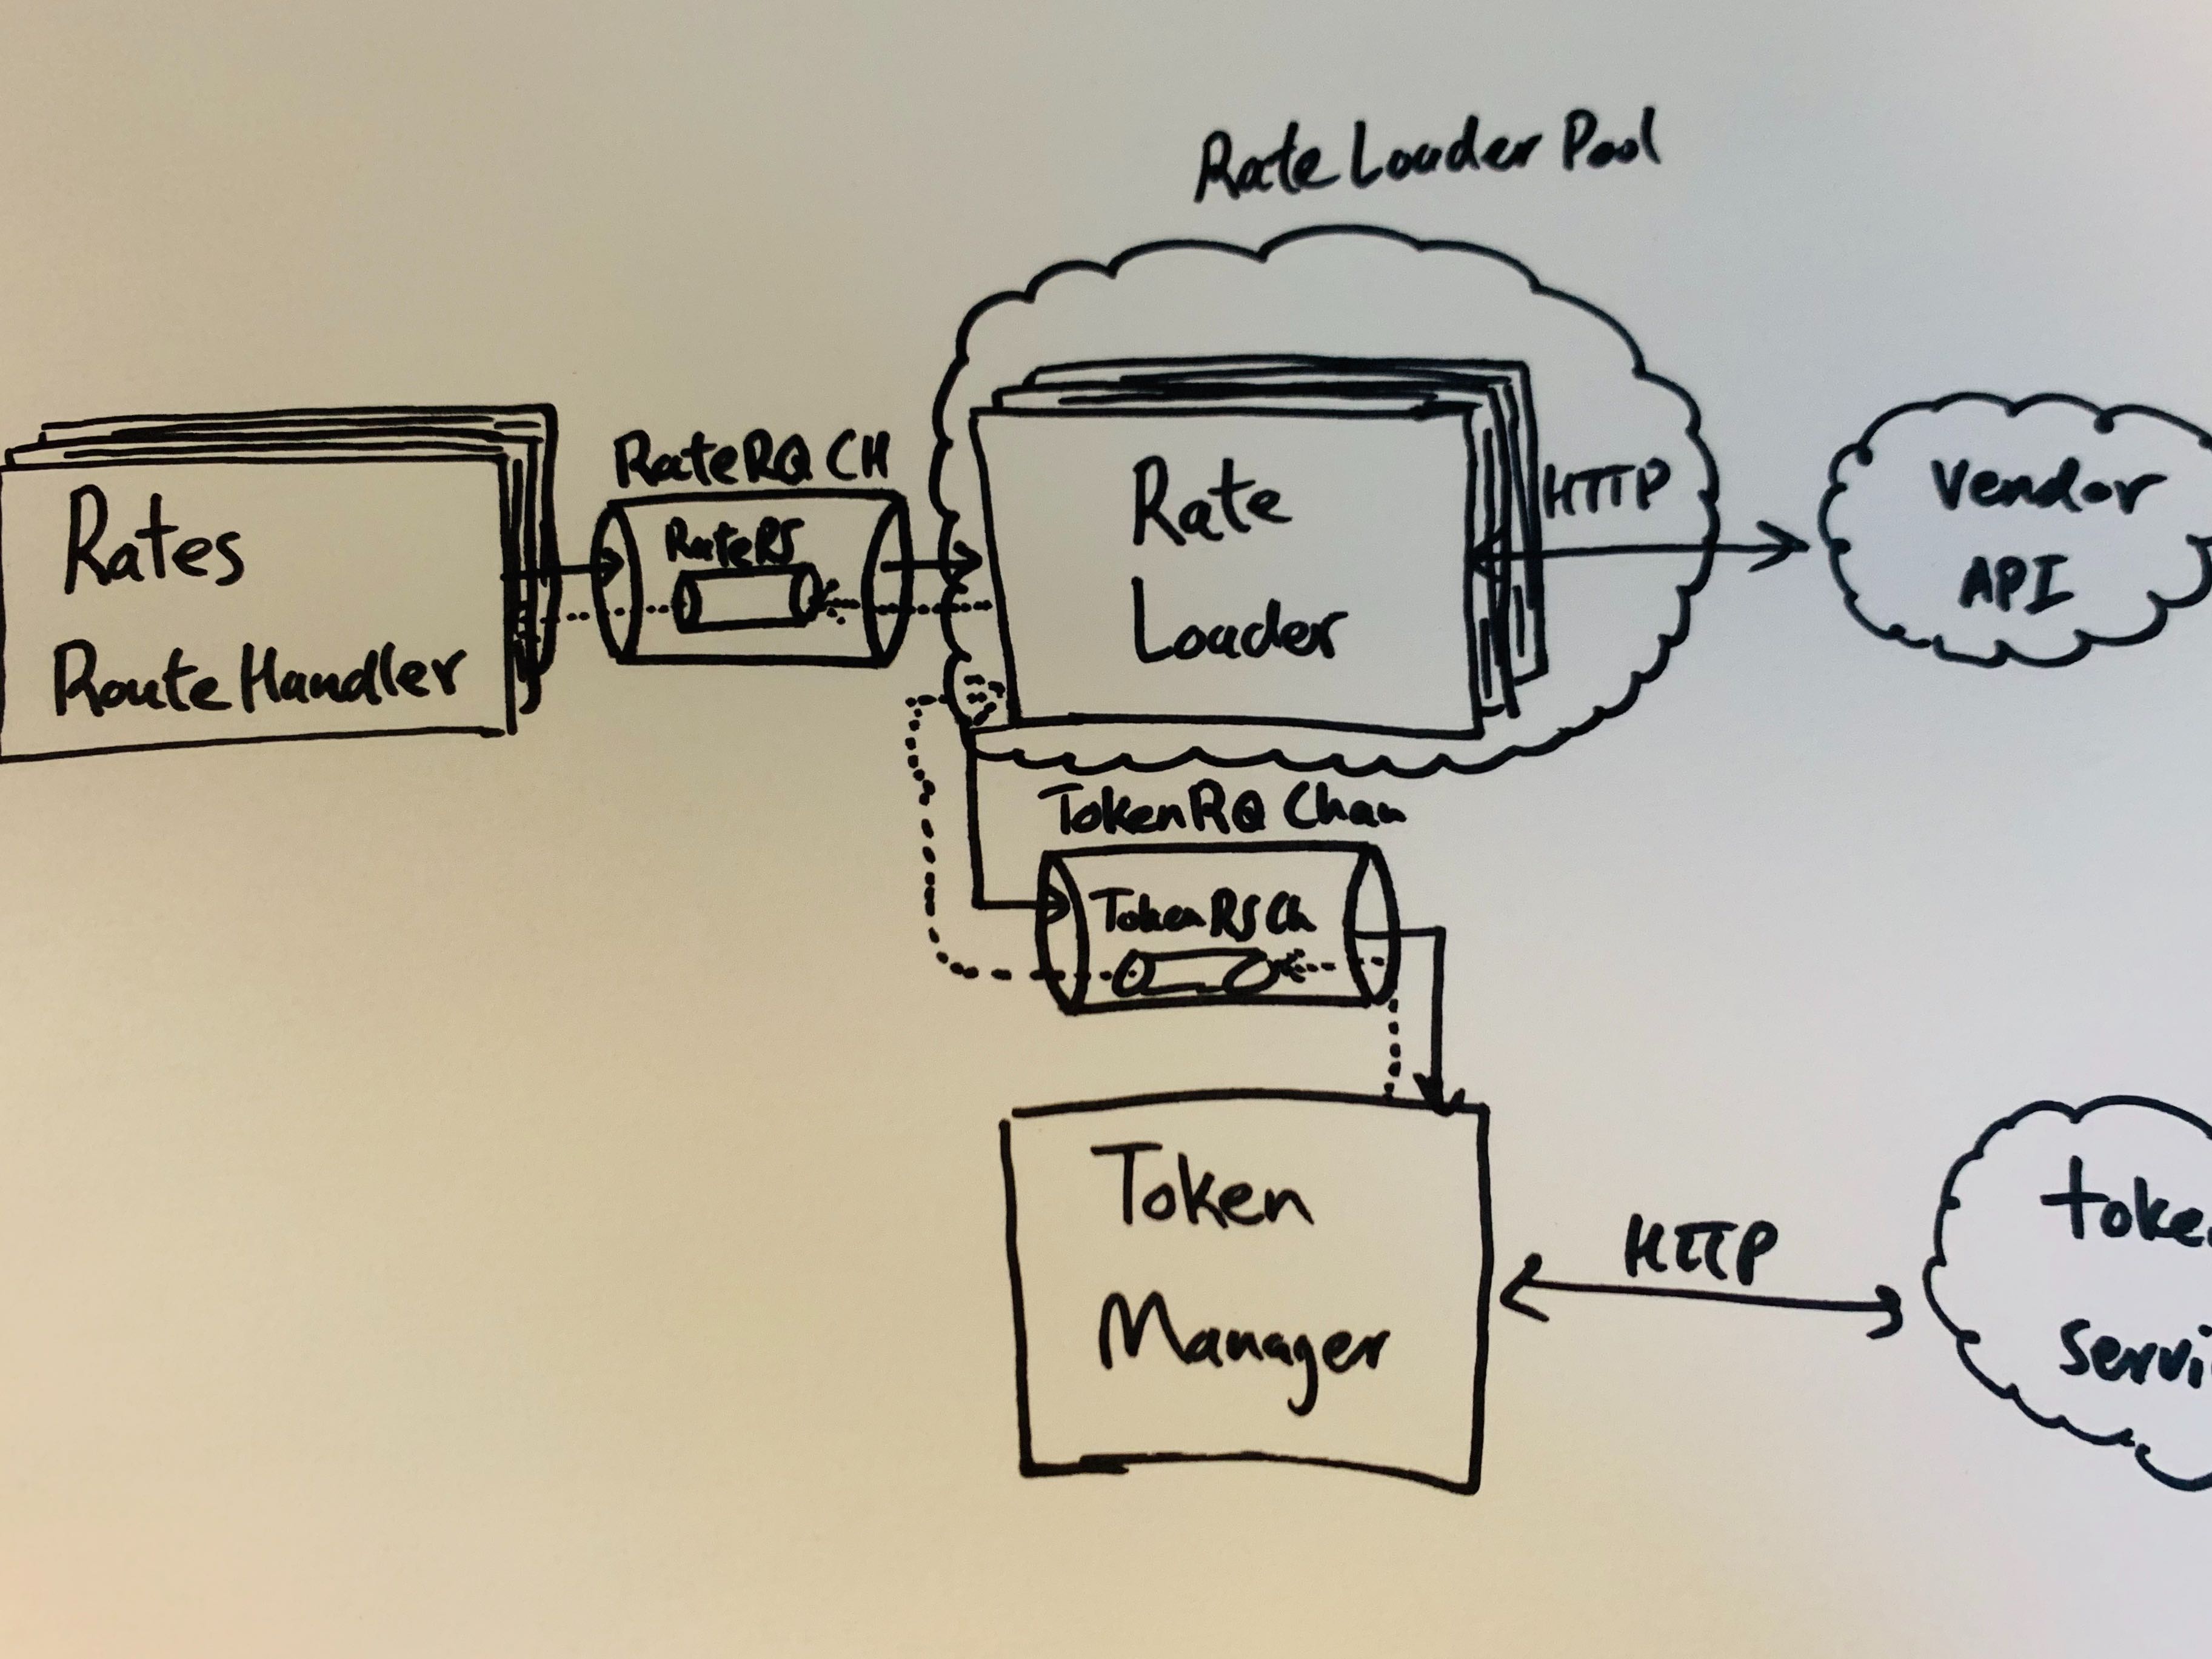 Rate Loader Pool
RateRQ CH
RateRS
Rates
Route Handler
Rate
Loader
HTTP
Vendor
API
TokenRQ Chan
TokenRSCh
Token
Manager
HTTP
toke
servi